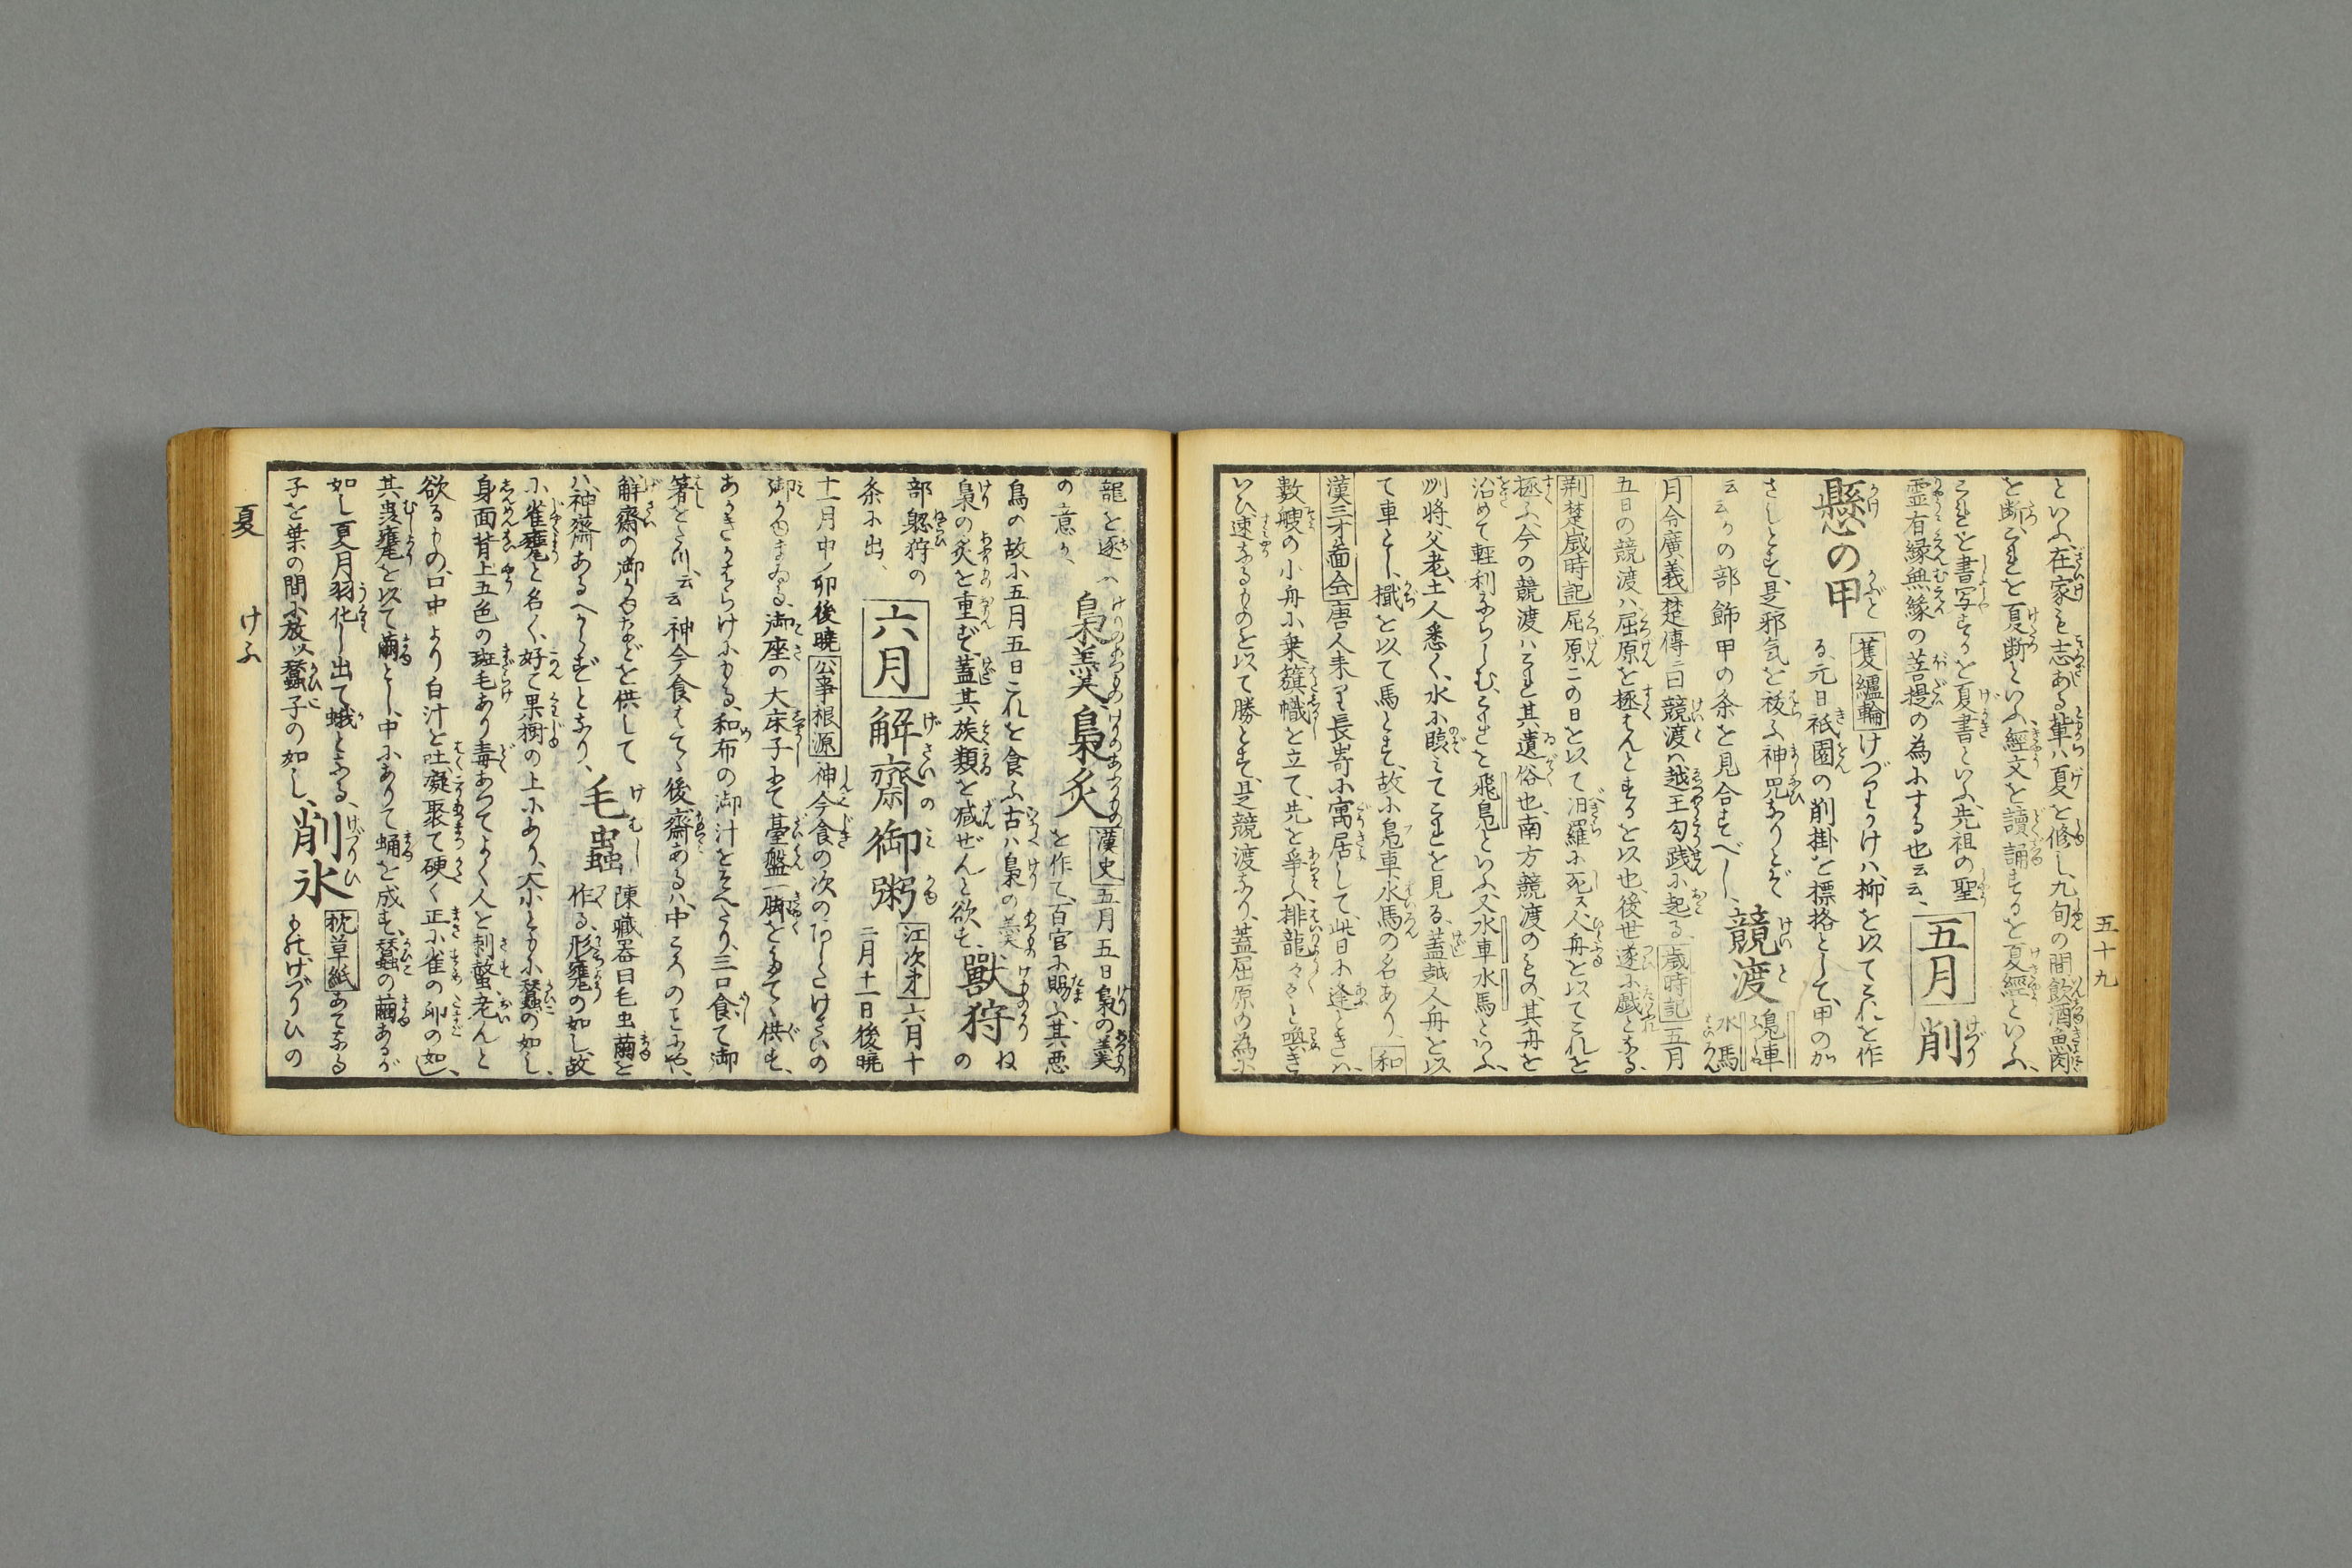 といふ、在家も志ある輩ハ夏を修し、九旬の間飲酒魚肉
を断、これを夏断といふ、經文を讀誦するを夏經といふ、
これを書写するを夏書といふ、先祖の聖
霊有縁無縁の菩提の為にする也云云、 五月 削
懸の甲 篗纑輪 けづりかけハ、柳を以てこれを作
る、元日祇園の削掛を標格として、甲のか
さしとす、是邪気を祓ふ神咒なりとぞ
云云かの部飾甲の条を見合すべし、 競渡 鳧車 水馬
月令廣義 楚傳ニ曰競渡ハ越王勾践に起る、 歳時記 五月
五日の競渡ハ屈原を拯はんとするを以也、後世遂に戯となる、
荆楚歳時記 屈原この日を以て汨羅に死ス、人舟を以てこれを
拯ふ、今の競渡ハこれ其遺俗也、南方競渡のもの、其舟を
治めて軽利ならしむ、これを飛鳧といふ、又水車水馬といふ、
州将、父老、土人悉く、水に臨てこれを見る、蓋越人舟を以
て車とし、檝を以て馬とす、故に鳧車水馬の名あり、 和
漢三才圖会 唐人来りて長崎に寓居して、此日に逢ときハ、
數艘の小舟に乗、籏幟を立て、先を争ふ、排龍々々と喚き
いひ、速なるものを以て勝とす、是競渡なり、蓋屈原の為に
五十九
龍を逐ふ
の意か、 梟羮梟炙 漢史 五月五日梟の羮
を作て、百官に賜ふ、其悪
鳥の故に五月五日これを食ふ、古ハ梟の羮
梟の炙を重ず、蓋其族類を滅ぜんと欲す、 獸狩 の
部照狩の
条に出、 六月 解齋御粥 江次才 六月十
二月十一日後暁
十一月中ノ卯後暁 公事根源 神今食の次の
御かゆまゐる、御座の大床子にて臺盤一脚をたてゝ供す、
あつきかはらけにもる、和布の御汁をそへたり、三口食て御
箸をたつ、云云神今食はてゝ後齋あるハ、中ころのことにや、
解齋の御かゆなどを供して
ハ、神齋あるへからずとなり、 毛蟲 陳藏器曰毛虫繭を
作る、形甕の如し、故
に雀甕と名く、好て果樹の上にあり、大小とも蠶の如し、
身面背上五色の斑毛あり毒あつてよく人を刺螫、老んと
欲るもの、口中より白汁を吐、凝聚て硬く正に雀の卵の如し、
其虫甕を以て繭とし、中にありて蛹を成す、蠶の繭あるが
如し夏月羽化し出て蛾となる、
子を葉の間に放ハ蠶子の如し、 削氷 枕草紙 あてなる
もの、けづりひの
夏 けふ